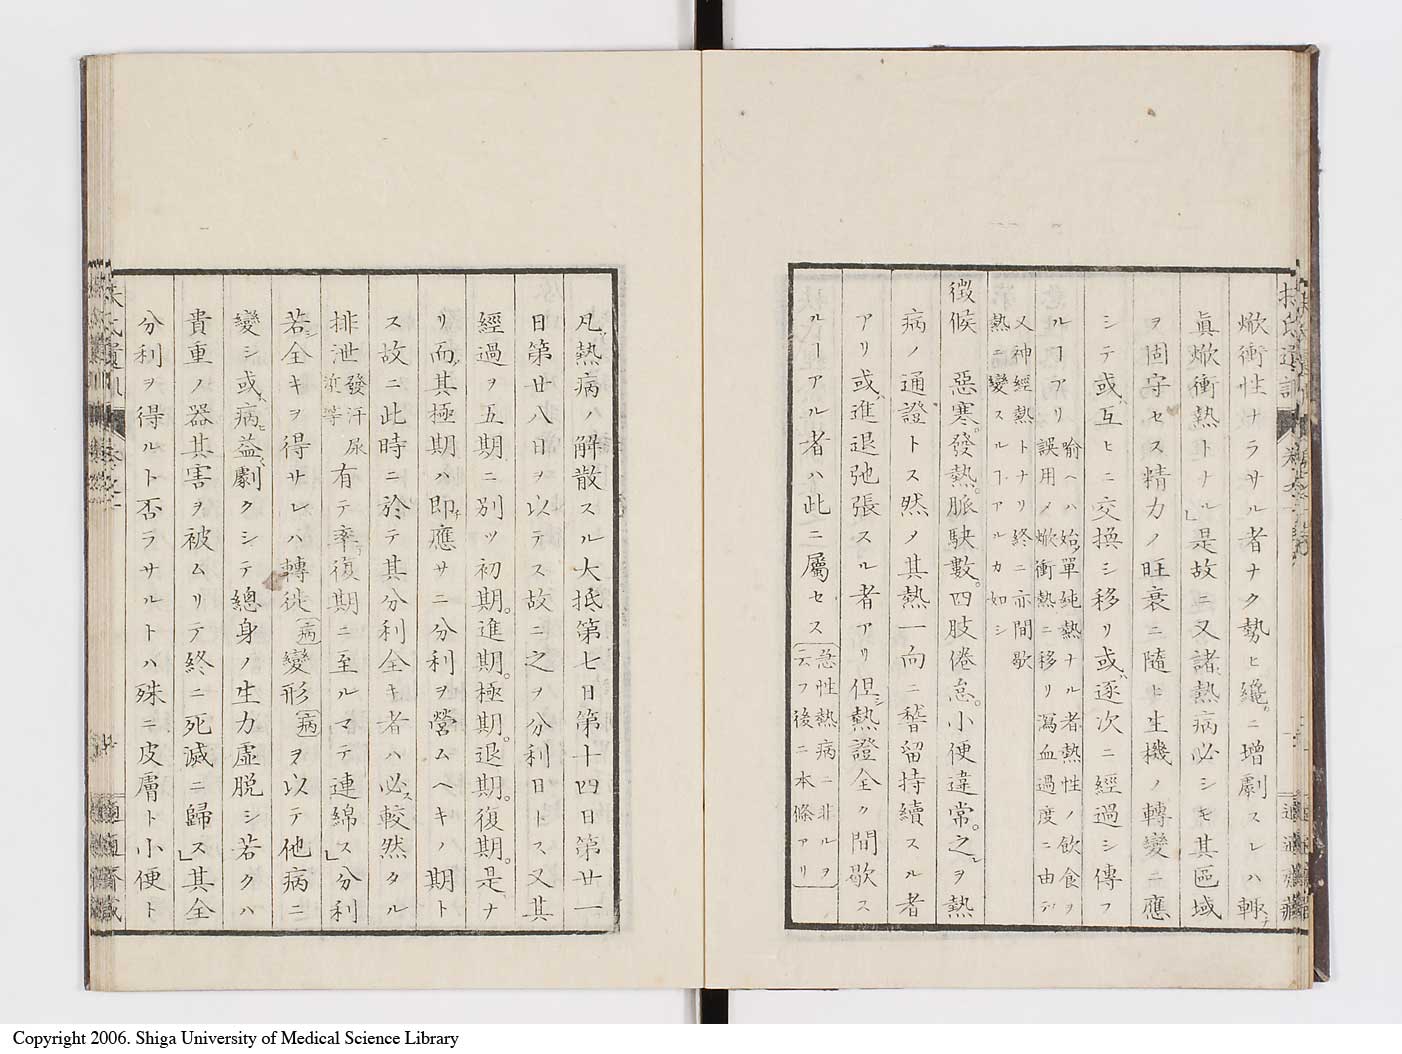 焮衝性ナラサル者ナク勢ヒ纔ニ増劇スレハ輙チ
眞焮衝熱トナル」是故ニ又諸熱病必シモ其區域
ヲ固守セス精力ノ旺衰ニ隨ヒ生機ノ轉變ニ應
シテ或ハ互ヒニ交換シ移リ或ハ逐次ニ經過シ傳フ
ルヿアリ
喻ヘハ始メ單純熱ナル者熱性ノ飲食ヲ
誤用ノ焮衝熱ニ移リ瀉血過度ニ由テ
又神經熱トナリ終ニ亦間歇
熱ニ變スルヿアルカ如シ
徴候 惡寒。發熱。脈駃數。四肢倦怠。小便違常。之ヲ熱
病ノ通證トス然ノ其熱一向ニ稽留持續スル者
アリ或ハ進退弛張スル者アリ但シ熱證全ク間歇ス
ルヿアル者ハ此ニ屬セス
急性熱病ニ非ルヲ
云フ後ニ本條アリ
凡ソ熱病ハ解散スル大抵第七日第十四日第廿一
日第廿八日ヲ以テス故ニ之ヲ分利日トス又其
經過ヲ五期ニ別ツ初期。進期。極期。退期。復期。是ナ
リ而其極期ハ即チ應サニ分利ヲ營ムヘキノ期ト
ス故ニ此時ニ於テ其分利全キ者ハ必ス較然タル
排泄
發汗尿
泄等
有テ率復期ニ至ルマテ連綿ス」分利
若シ全キヲ得サレハ轉徙病變形病ヲ以テ他病ニ
變シ或ハ病益劇クシテ總身ノ生力虛脱シ若クハ
貴重ノ器其害ヲ被ムリテ終ニ死滅ニ歸ス」其全
分利ヲ得ルト否ラサルトハ殊ニ皮膚ト小便ト
Copyright 2006. Shiga University of Medical Science Library